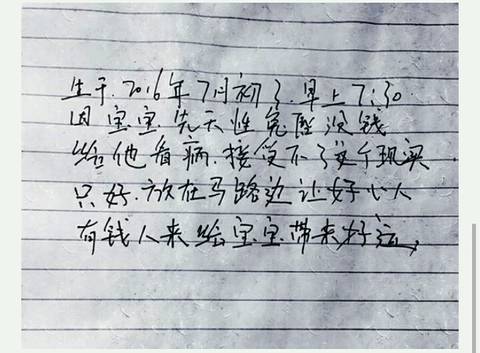 生于.2016年7月初3.早上7:30
因宝宝先天性兔唇没钱
给他看病.接受不了这个现实
只好.放在马路边让好心人
有钱人来给宝宝带来好运,